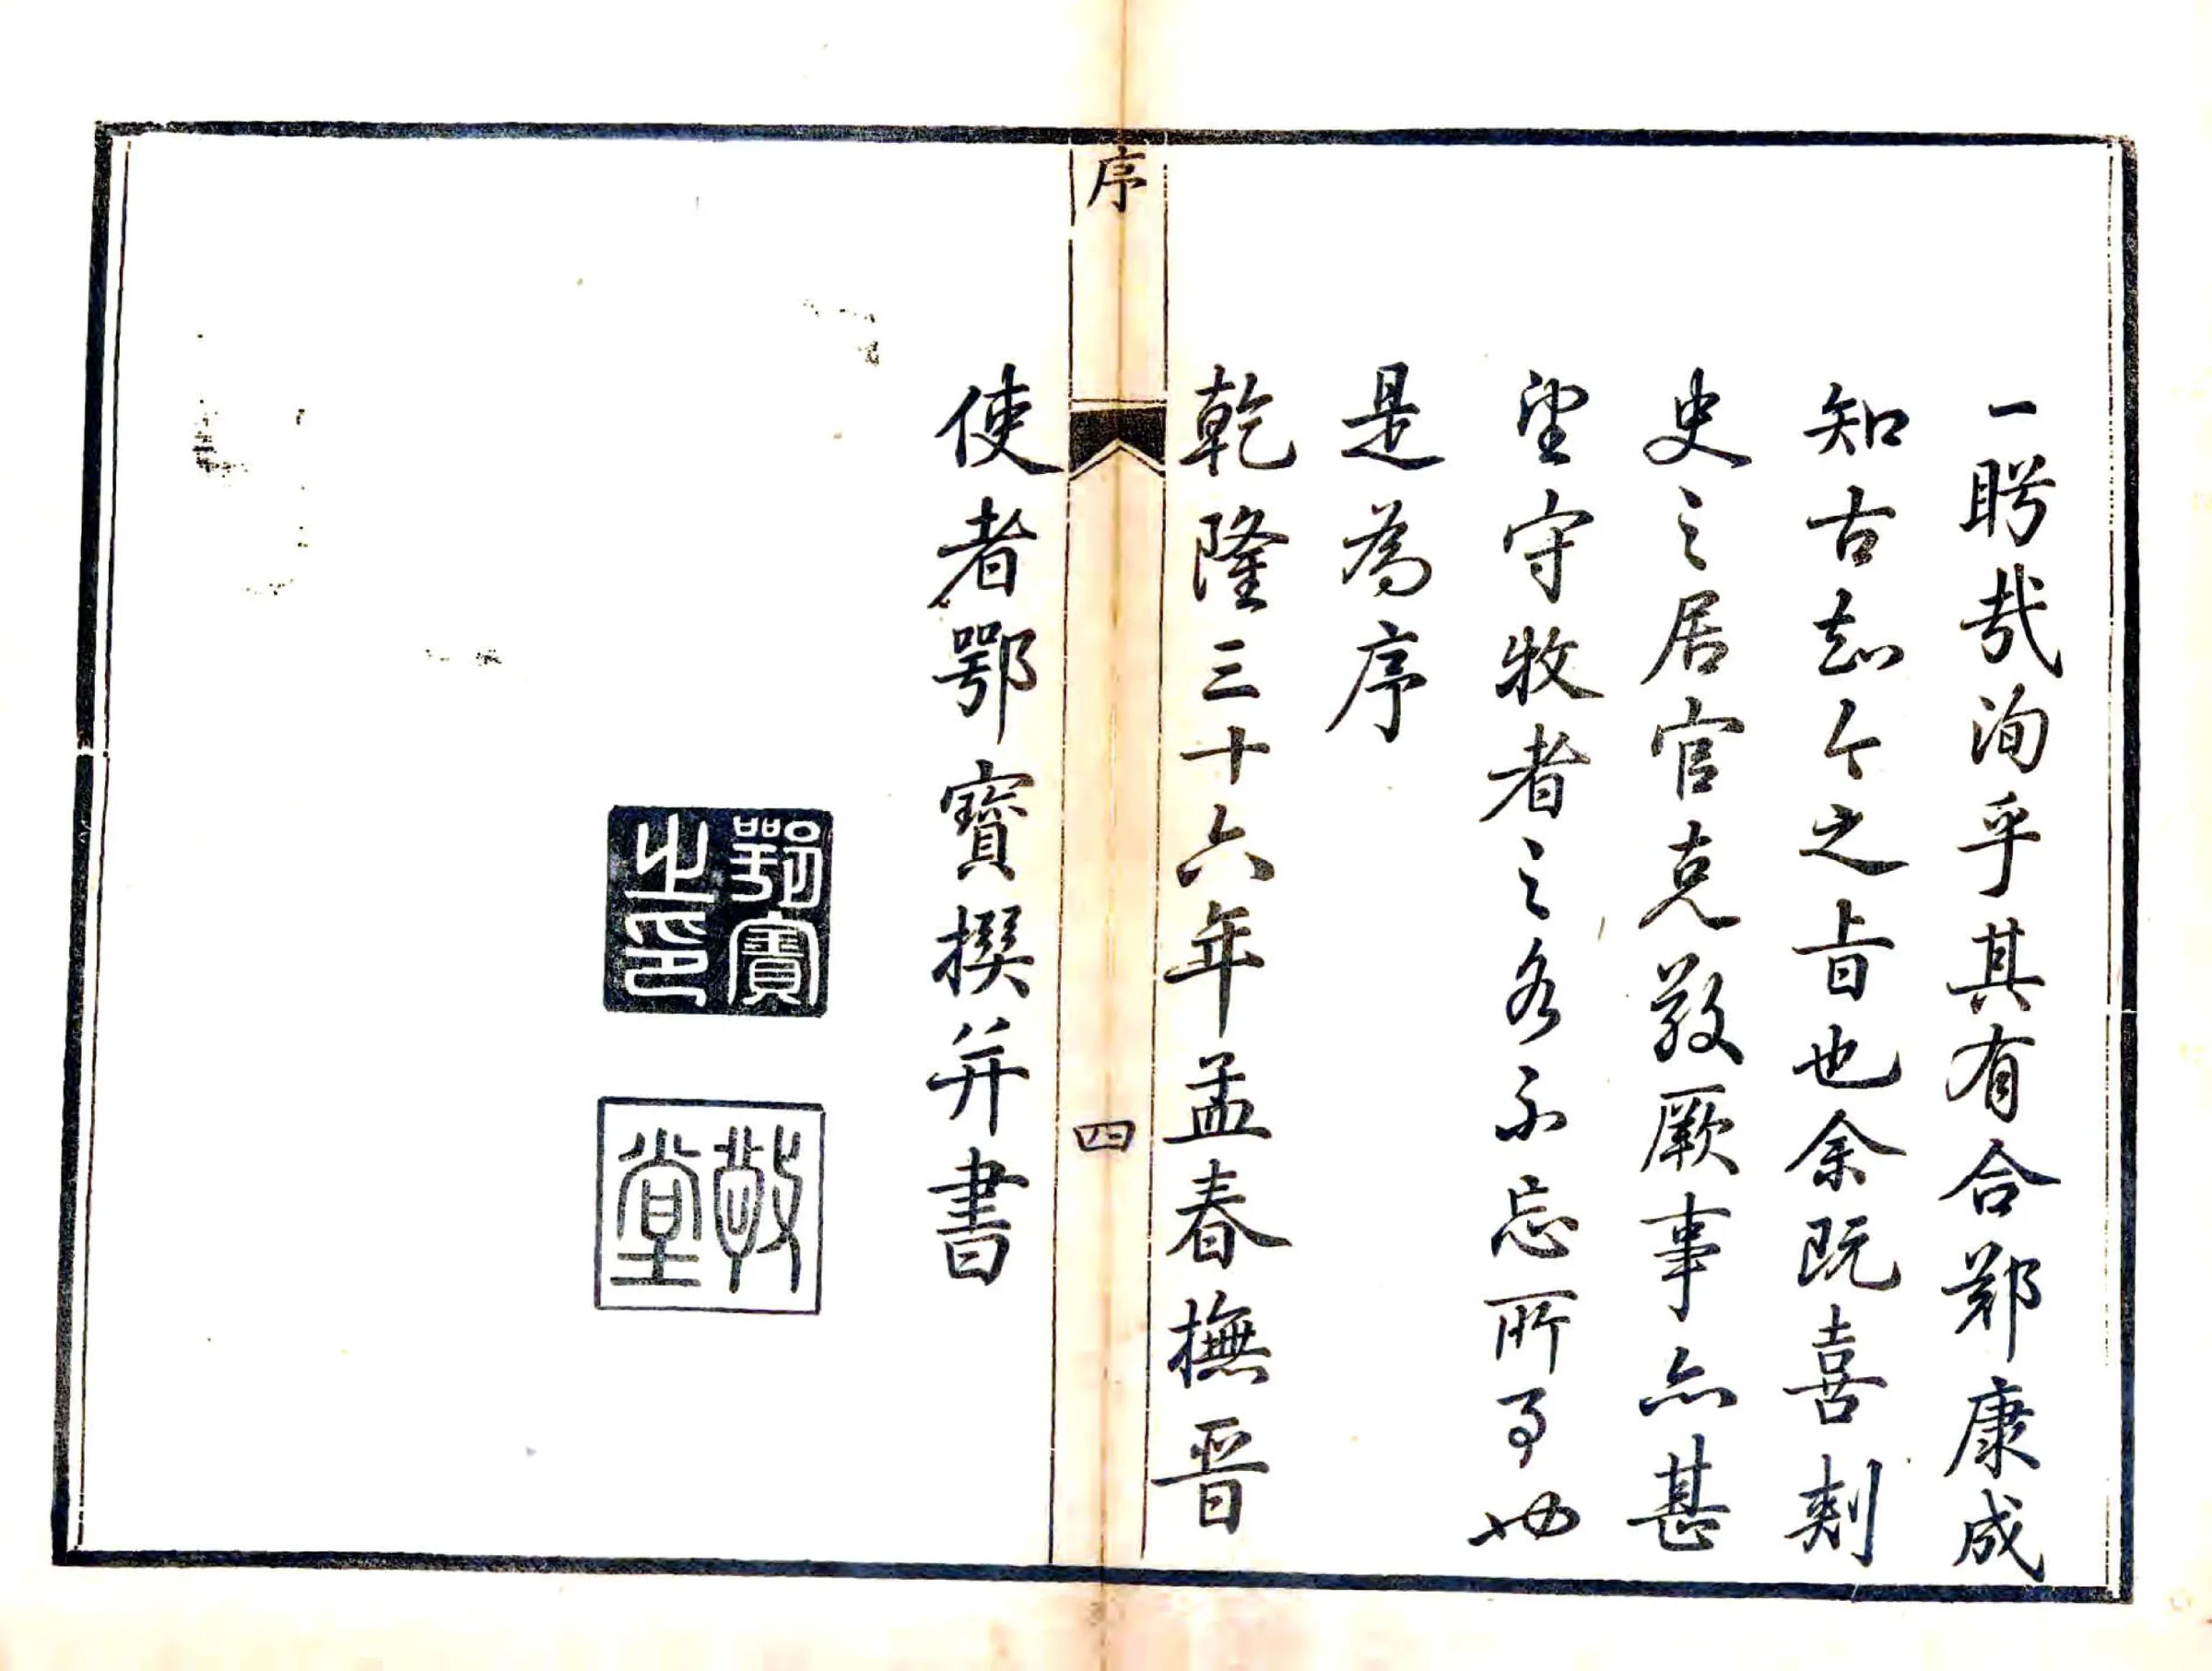 一盻哉洵乎其有合鄭康成
知古知今之旨也余既喜刺
史之居官克敬厥事亦甚
望守牧者之各不忘所事也
是為序
乾隆三十六年孟春撫晉
序
四
使者鄂寶撰并書
鄂寶之印
敬堂